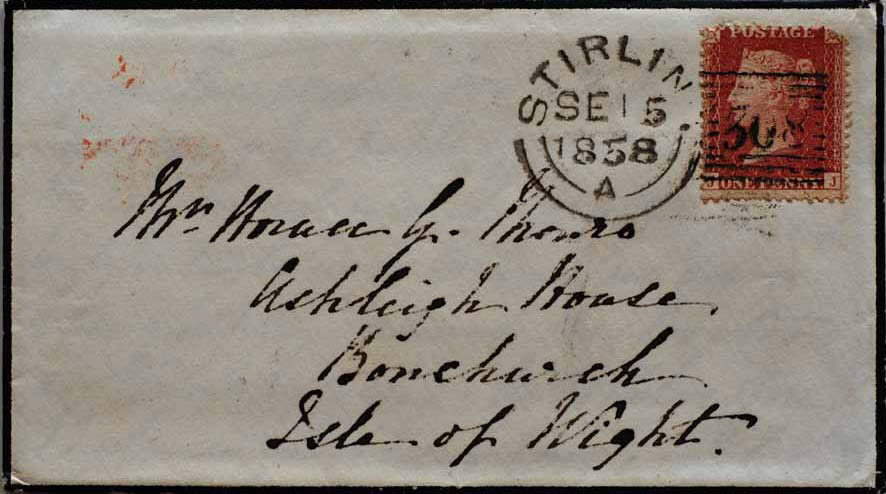 POSTAGE
STIRLIN
SE 15
1858
A
308
J ONE PENNY J
Mrs Horace G.
Ashleigh House
Bonchurch
Isle of Wight.